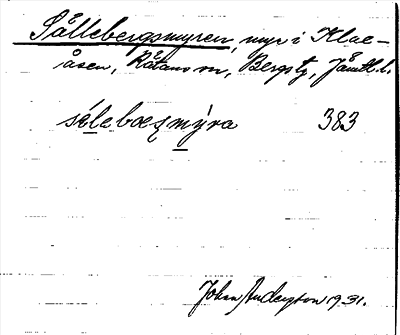 Sållebergsmyren, myr i Klac-
åsen, Rätans sn, Bergs tg, Jämtl. l.
séleboezmýra 383
Johan Andersson 1931.